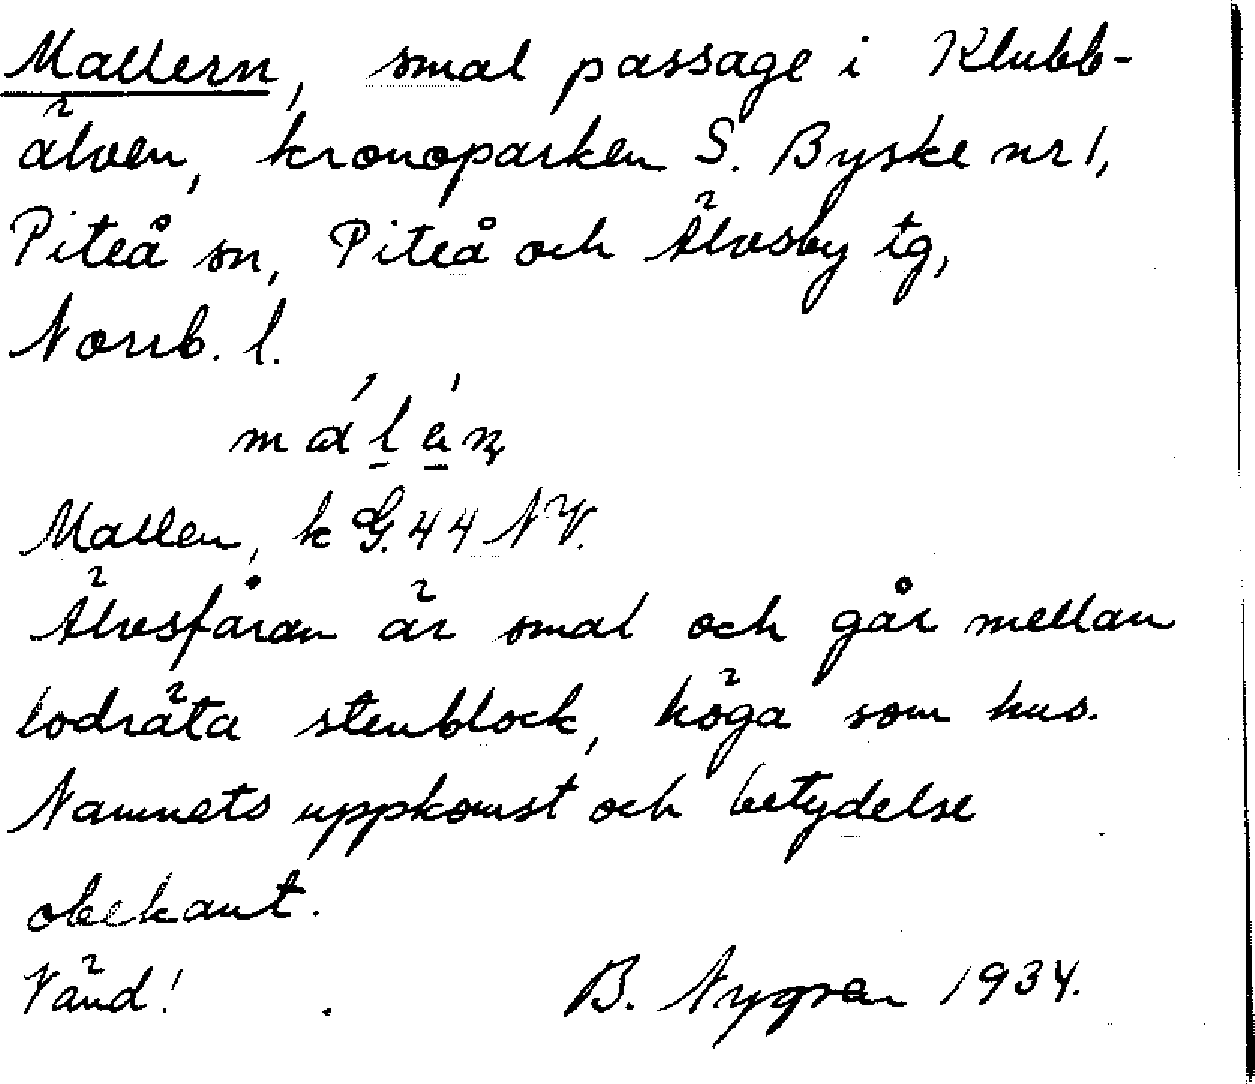 Mallern, smal passage i Klubb-
älven, kronoparken S. Byske nr 1,
Piteå sn, Piteå och Älvsby tg,
Norrb. l.
Mallen, k G. 44 NV.
Älvsfåran är smal och går mellan
lodräta stenblock, höga som hus.
Namnets uppkomst och betydelse
obekant.
Vänd!
B. Nygren 1934.